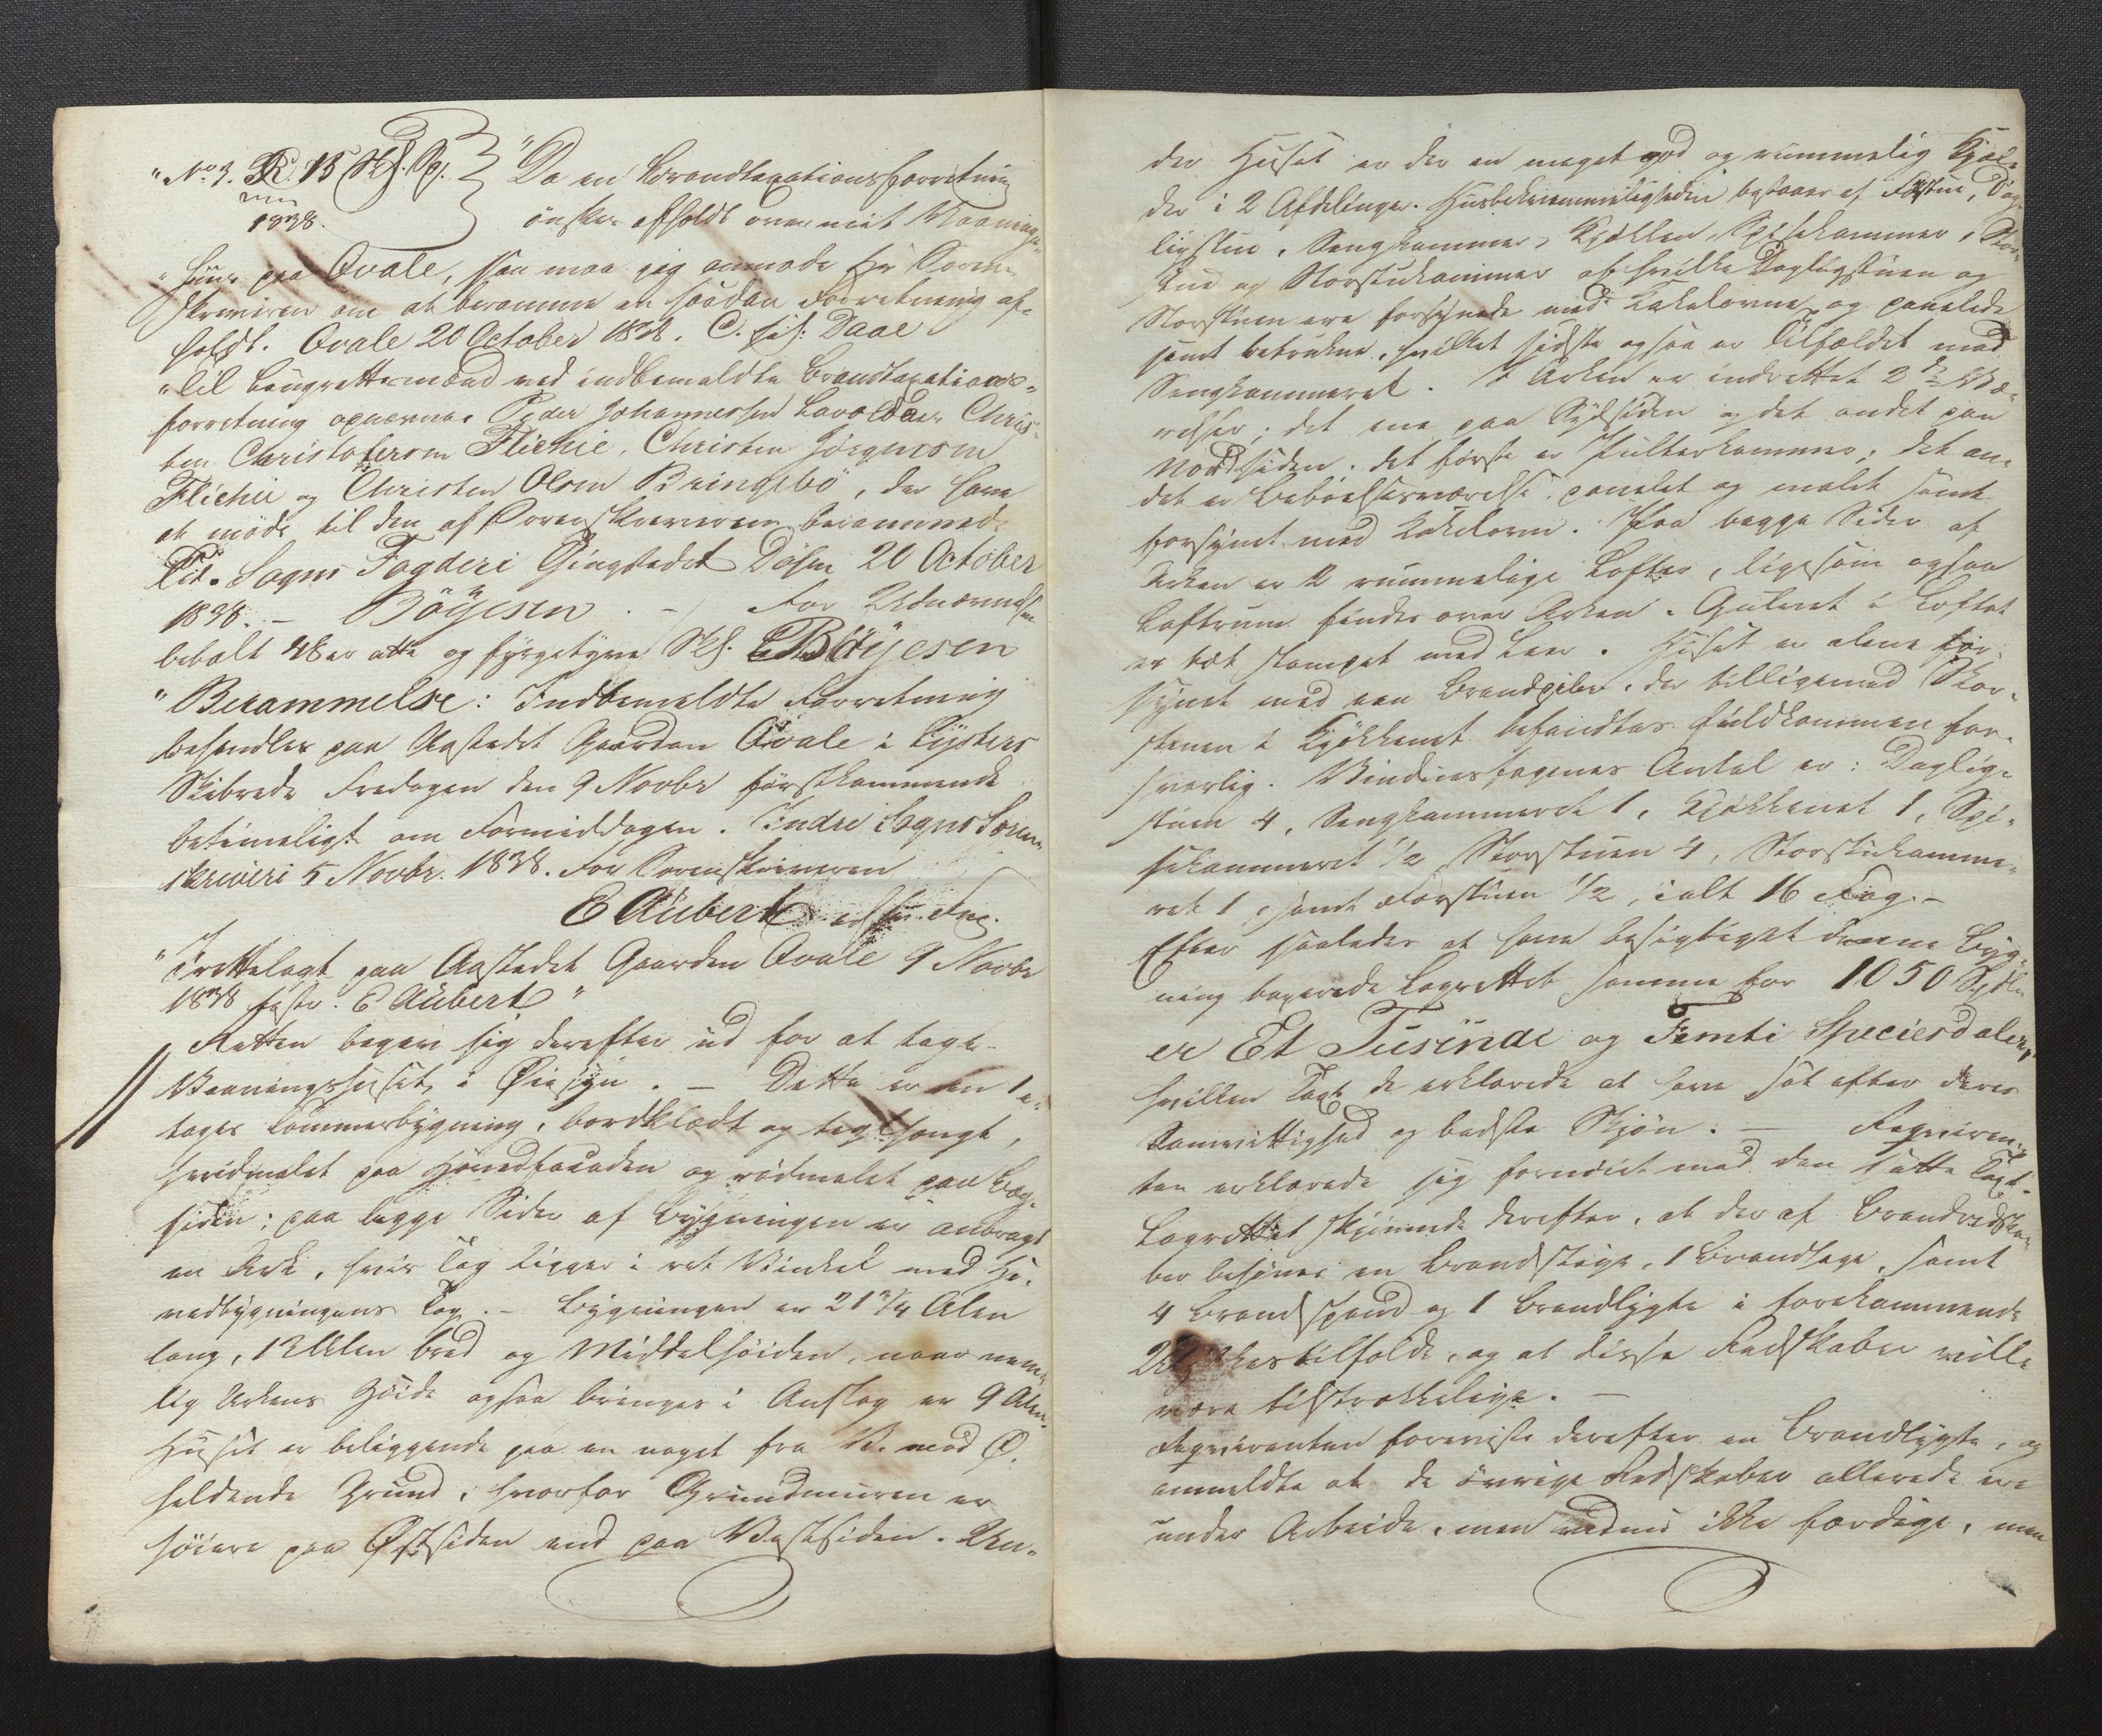 "No 3. R. 15 Skj. Sp. "Da en Brandtaxationsforretning
1838. ønskes afholdt over mit Vaanings-
"huus paa Qvale, saa maa jeg anmode Hr Soren-
skriveren om at beramme en saadan Forretning af-
holdt. Qvale 20 October 1838. C. Daae
"Til Laugrettemænd ved indbemeldte Brandtaxations-
forretning opnævnes Peder Johannessen Chris-
ten Christofersen Flichie, Christen Jörgensen
Flichie og Christen Olsen Bringebö, der have
at møde til den af Sorenskriveren berammede
Tid. Sogns Fogderi Tingstedet Døsen 20 October
1838. – Böyesen. – For Udnævnelsen
betalt 48 er otte og fyrgetyve Skj. Böyesen
"Berammelse: Indbemeldte Forretning
behandles paa Aastedet Gaarden Qvale i Lysters
Skibrede Fredagen den 9 Novbr førstkommende
betimeligt om Formiddagen. Indre Sogns Soren-
skriveri 5 Novbr. 1838. For Sorenskriveren
E Aubert
"Irettelagt paa Aastedet Gaarden Qvale 9 Novbr
1838 E Aubert"
Retten begav sig derefter ud for at tage
Vaaningshuset i Øiesyn. – Dette er en 1 e-
tages Tømmerbygning, bordklædt og teglhængt,
hvidmalet paa Hovedfacaden og rødmalet paa Bag-
siden; paa begge Sider af Bygningen er anbragt
en Ark, hvis Tag ligger i ret Vinkel med Ho-
vedbygningens Tag. – Bygningen er 21 3/4 Alen
lang, 12 Alen bred og Middelhøiden, naar nem-
lig Arkens Høide ogsaa bringes i Anslag er 9 Alen.
Huset er beliggende paa en noget fra V. mod Ø.
heldende Grund, hvorfor Grundmuren er
høiere paa Østsiden end paa Vestsiden. Un-
der Huset er der en meget god og rummelig Kjæl-
der i 2 Afdelinger. Husbekvemmeligheden bestaaer af Forstue, Dag-
ligstue, Sengkammer, Kjøkken, Spisekammer, Stor-
stue og Storstukammer af hvilke Dagligstuen og
Storstuen ere forsynede med Kakelovne og panelede
samt betrukne, hvilket sidste ogsaa er Tilfældet med
Sengkammeret. I Arken er indrettet 2 Væ-
relser; det ene paa Sydsiden og det andet paa
Nordsiden. det første er Pulterkammer; det an-
det er Beboelsesværelse, panelet og malet samt
forsynet med Kakelovn. Paa begge Sider af
Arken er 2 rummelige Lofter, ligesom ogsaa
Loftrum findes over Arken. Gulvet i Loftet
er tæt stampet med Leer. Huset er alene for-
synet med een Brandpibe, der tilligemed Skor-
stenen i Kjøkkenet befandtes fuldkommen for-
svarlig. Vinduesfagenes Antal er: Daglig-
stuen 4, Sengkammeret 1, Kjøkkenet 1, Spi-
sekammeret 1/2, Storstuen 4, Storstukamme-
ret 1, samt Forstuen 1/2, ialt 16 Fag. –
Efter saaledes at have besigtiget denne Byg-
ning taxerede Lagrettet samme for 1050 Spdlr
er Et Tusinde og Femti Speciesdaler,
hvilken Taxt de erklærede at have sat efter deres
Samvittighed og bedste Skjøn. – Reqviren-
ten erklærede sig fornøiet med den satte Taxt.
Lagrettet skjønnede derefter, at der af Brandredska-
ber behøves en Brandstige, 1 Brandhage, samt
4 Brandspand og 1 Brandlygte i forekommende
Ulykkestilfælde, og at disse Redskaber ville
være tilstrækkelige. –
Reqvirenten foreviste derefter en Brandlygte, og
anmeldte at de øvrige Redskaber allerede ere
under Arbeide, men endnu ikke færdige, men